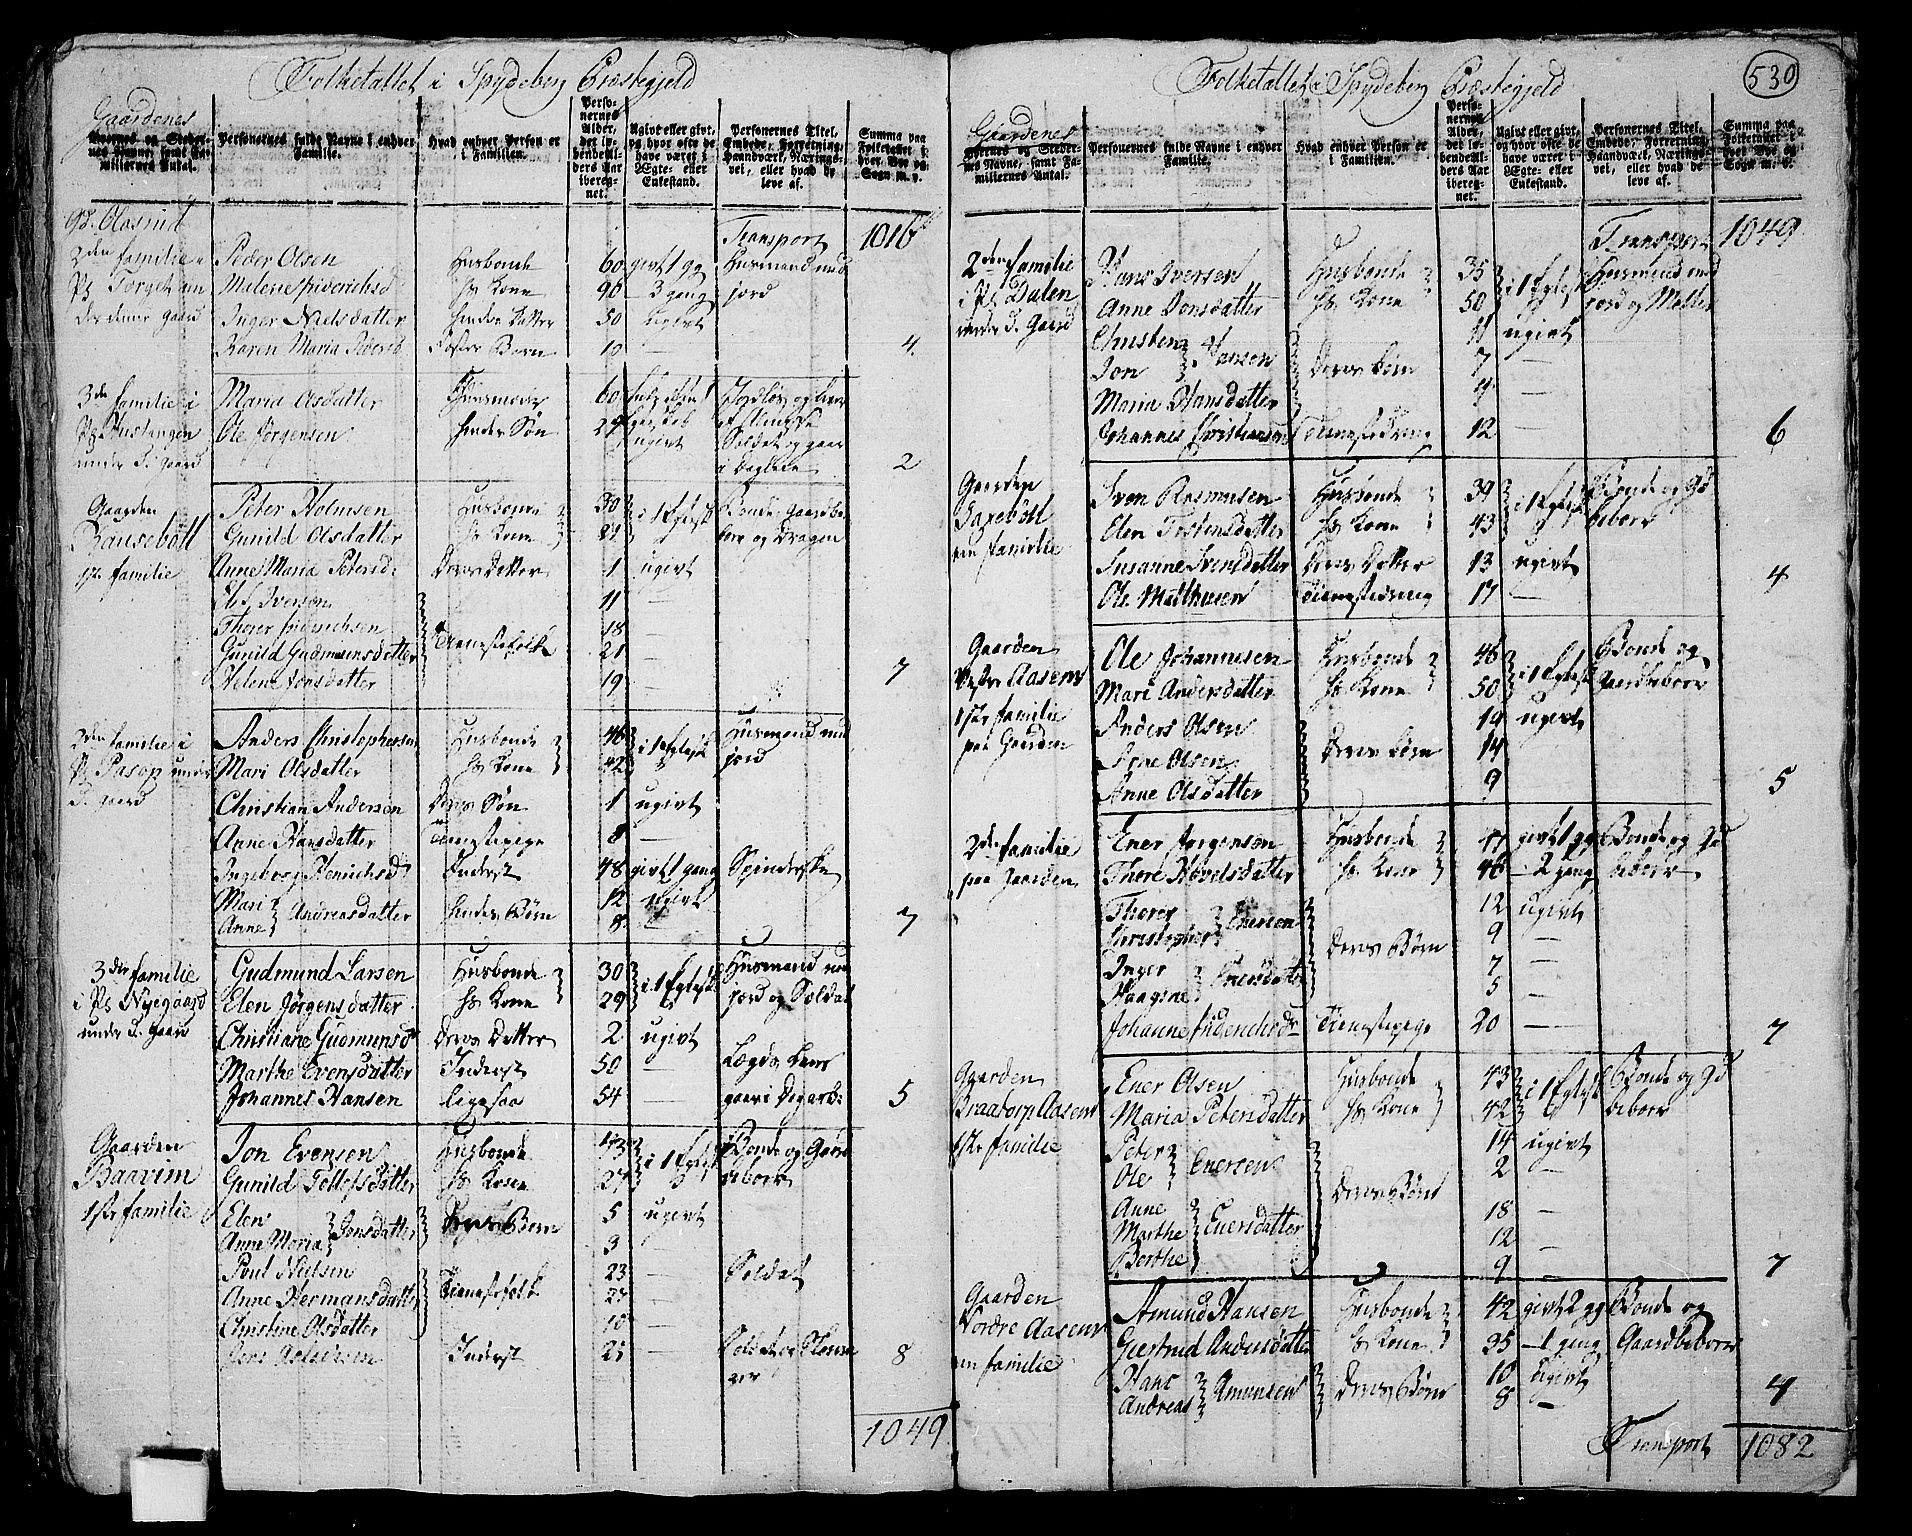 Folketallet i Spydeberg Præstegjeld
Gaardenes
Personernes fulde Navne i enhver Familie.
Hvad enhver Person er i Familien.
Personernes Alder, det løbendeAlders Aar iberegnet.
Ugivt eller givt, og hvor ofte de have været i Ægte- eller Enkestand.
Personernes Titel, Embede, Forretning, Haandværk, Næringsvei, eller hvad de leve af.
Summa paa Folketallet i hver Bye og Sogn m. v.
Transport 1016
2den familie i Peder Olsen Husbonde 60 givt 1 gg Husmand med
Pl. Torgetun Malene friderichsd hs Kone 90 — 3 gang jord
under denne gaard Inger Nielsdatter hendes Datter 50 Ugivt
Karen Maria Pedersd Foster Barn 10 — 4.
3die familie i Maria Olsdatter Huusmoder 60
Pl. Ole Jørgensen hendes Søn 29 ugivt Soldat og gaar
under d. gaard i Dagleie 2
Gaarden Peter Holmsen Husbonde 30 i 1 Egtesk Bonde Gaardbe
Bausebøll Gunild Olsdatter hs Kone boer og Dragon
1ste familie Anne Maria Petersd. Deres Datter 1 ugivt
Ele Iversen 11 —
Thorer friderichsen 18 —
Gunild Gudmunsdatter Tienestefolk 21 —
Helene Jonsdatter 19 — 7
2den familie i Anders Christophersen Husbonde 46 i 1 Egtesk Husmand med
Pl. Pasop under Mari Olsdatter hs Kone 42 jord
d. gaard
Christian Andersen Deres Søn 1 ugivt
Anne Hansdatter Tienestepige 8 —
Ingeborg Henrichsd Inderst 48 givt 1 gang Spinderske
Mari } Andreasdatter hendes Børn 12 ugivt
Anne 8 — 7
3die familie Gudmund Larsen Husbonde 30 i 1 Egtesk Husmand med
i Pl. Nyegaard Elen Jørgensdatter hs Kone 29 jord og Soldat
under d. gaard Christiane Gudmunsd Deres Datter 2 ugivt
Marthe Evensdatter Inderst 50 — Lægds Lem
Johannes Hansen Ligesaa 54 — gaar i Dagarb: 5
Gaarden Jon Evensen Husbonde 43 i 1 Egtesk Bonde og Gaard
Baavim Gunild Tollefsdatter hs Kone 27 beboer
1ste familie Elen 5 ugivt
Anne Maria } Jonsdatter Deres Børn 3
Poul Nielsen 23 — Soldat
Anne Hermansdatter Tienestefolk 27 —
Christine Olsdatter 10 —
Inderst 25 8
1049

Folketallet i Spydeberg Præstegjeld 530
Gaardenes
Personernes fulde Navne i enhver Familie.
Hvad enhver Person er i Familien.
Personernes Alder, det løbendeAlders Aar iberegnet.
Ugivt eller givt, og hvor ofte de have været i Ægte- eller Enkestand.
Personernes Titel, Embede, Forretning, Haandværk, Næringsvei, eller hvad de leve af.
Summa paa Folketallet i hver Bye og Sogn m. v.
Transport 1049
2den familie Hans Iversen Husbonde 35 i 1 Egtesk Husmand med
i Pl. Dalen Anne Jonsdatter hs Kone 50 jord og Møller
under d. Gaard Christen } Hansen 11 ugivt
Jon Deres Børn 7 —
Maria Hansdatter 4
Johannes Christiansen Tienestedreng 12 — 6
Gaarden Sven Rasmusen Husbonde 39 i 1 Egtesk Bonde og Gd
Saxebøll Elen Tostensdatter hs Kone 43 beboer
een familie Susanne Svensdatter Deres Datter 13 ugivt
Ole Mathisen Tienestedreng 17 — 4
Gaarden Ole Johannesen Husbonde 46 i 1 Egtesk Bonde og
Vestre Aasens Mari Andersdatter hs Kone 50 Gaardbeboer
1ste familie Anders Olsen 19 ugivt
paa Gaarden Arne Olsen Deres Børn 14
Anne Olsdatter 9 5
2den familie Ener Jørgensen Husbonde 47 givt 1 gg Bonde og Gd
paa Gaarden Thore Hovelsdatter hs Kone 46 — 2 gang beboer
Thorer } Enersen 12 ugivt
Christopher 9 —
Inger } Enersdatter Deres Børn 7 —
Haagine 5 —
Johanne friderichsdr Tienestepige 20 — 7
Gaarden Ener Olsen Husbonde 43 i 1 Egtesk Bonde og Gd
Braatorp Aasens Maria Petersdatter hs Kone 42 beboer
1ste familie Peter } Enersen 14 ugivt
Ole 2 —
Anne Deres Børn 18 —
Marthe } Enersdatter 12 —
Berthe 9 — 7
Gaarden Amund Hansen Husbonde 42 givt 2 gg Bonde og
Nordre Aasens Giertrud Andersdatter hs Kone 35 — 1 gang Gaardbeboer
een familie Hans } Amunsen Deres Børn 10 Ugivt
Andreas 8 — 4
Transport 1082